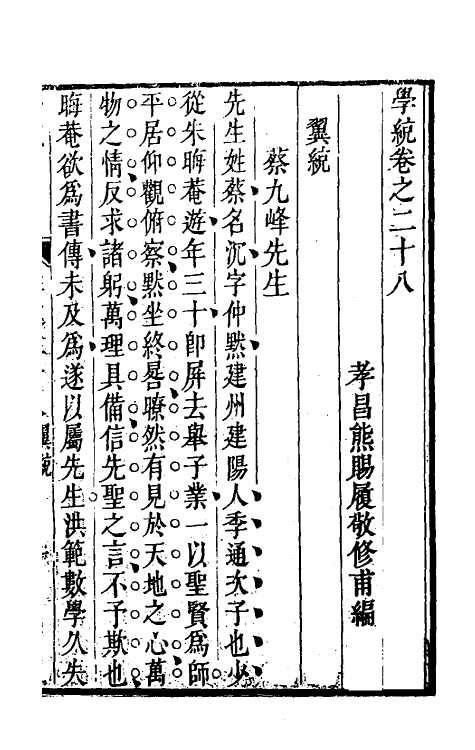 學統卷之二十八
孝昌熊賜履敬修甫編
翼統
蔡九峰先生
先生姓蔡名沉字仲默建州建陽人季通次子也少
從朱晦菴遊年三十卽屏去舉子業一以聖賢爲師
平居仰觀俯察默坐終晷瞭然有見於天地之心萬
物之情反求諸躬萬理具備信先聖之言不予欺也
晦菴欲爲書傳未及爲遂以屬先生洪範數學久失
翼統